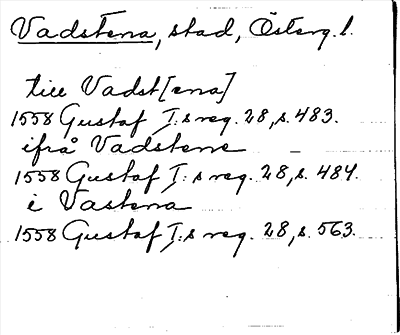 Vadstena, stad, Österg. l.
till Vadst[ena]
1558 Gustaf I:s reg. 28, s. 483.
ifrå Vadstene
1558 Gustaf I:s reg. 28, s. 484.
i Vastena
1558 Gustaf I:s reg. 28, s. 563.